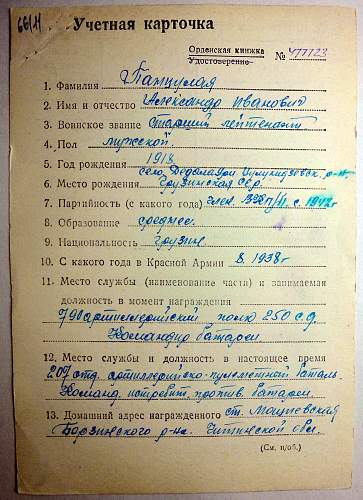 661Н
Учетная карточка
Орденская книжка
Удостоверение
№ 477123
1. Фамилия Панцулая
2. Имя и отчество Александр Иванович
3. Воинское звание Старший лейтенант
4. Пол мужской.
5. Год рождения 1918
село р-на
6. Место рождения Грузинская ССР.
7. Партийность (с какого года) член ВКП/б/ с 1942г
8. Образование среднее.
9. Национальность грузин
10. С какого года в Красной Армии 8. 1938г
11. Место службы (наименование части) и занимаемая
должность в момент награждения
790 артиллерийский полк 250 с.д.
Командир батареи
12. Место службы и должность в настоящее время
209 отд. артиллерийско-пулеметной баталь.
Команд. истребит. против. батареи.
13. Домашний адрес награжденного ст.
Борзинского р-на. Читинской обл.
(См. н/об.)